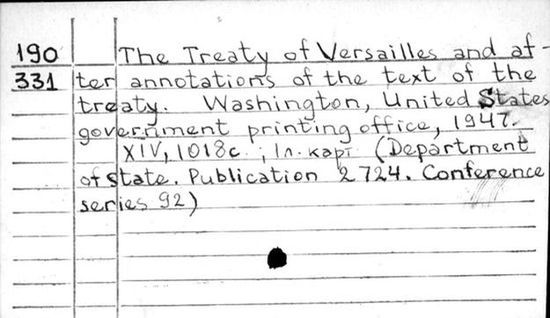 190 The Treaty of Versailles and af-
331 ter annotations of the text of the
treaty. Washington, United States
government printing office, 1947.
XIV, 1018c.; 1л. карт (Department
of state. Publication 2724. Conference
series 92)